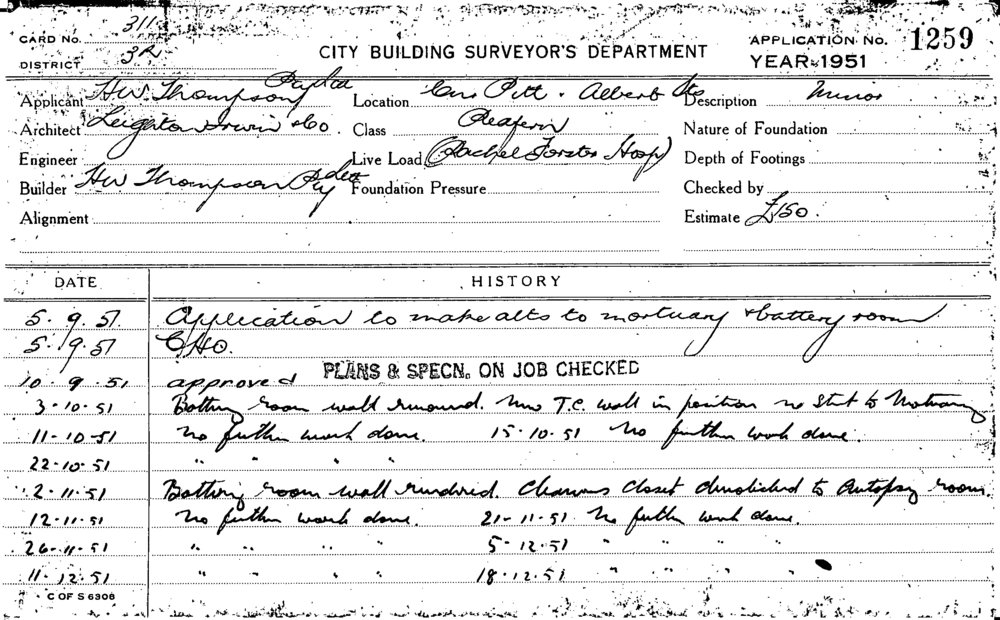 CARD No. 311
DISTRICT 3A
CITY BUILDING SURVEYOR'S DEPARTMENT
APPLICATION No. 1259
YEAR 1951
Applicant H W Thompson Pty Ltd
Location Cnr Pitt & Albert Sts
Description Minor
Architect Leighton Irwin & Co.
Class Redfern
Nature of Foundation
Engineer
Live Load (Rachel Forster Hosp)
Depth of Footings
Builder H W Thompson Pty Ltd
Foundation Pressure
Checked by
Alignment
Estimate £150.
DATE HISTORY
5.9.51 Application to make alts to mortuary & battery room
5.9.51 CHO.
10.9.51 approved PLANS & SPECN. ON JOB CHECKED
3-10-51 Battery room wall removed. New T.C. wall in position no start to Mortuary
11-10-51 No further work done. 15-10-51 No further work done.
22-10-51 " " " "
2-11-51 Battery room wall rendered. Cleaners Closet demolished to Autopsy room.
12-11-51 No further work done. 21-11-51 No further work done.
26-11-51 " " " " 5-12-51 " " " "
11-12-51 " " " " 18-12-51 " " " "
C OF S 6308